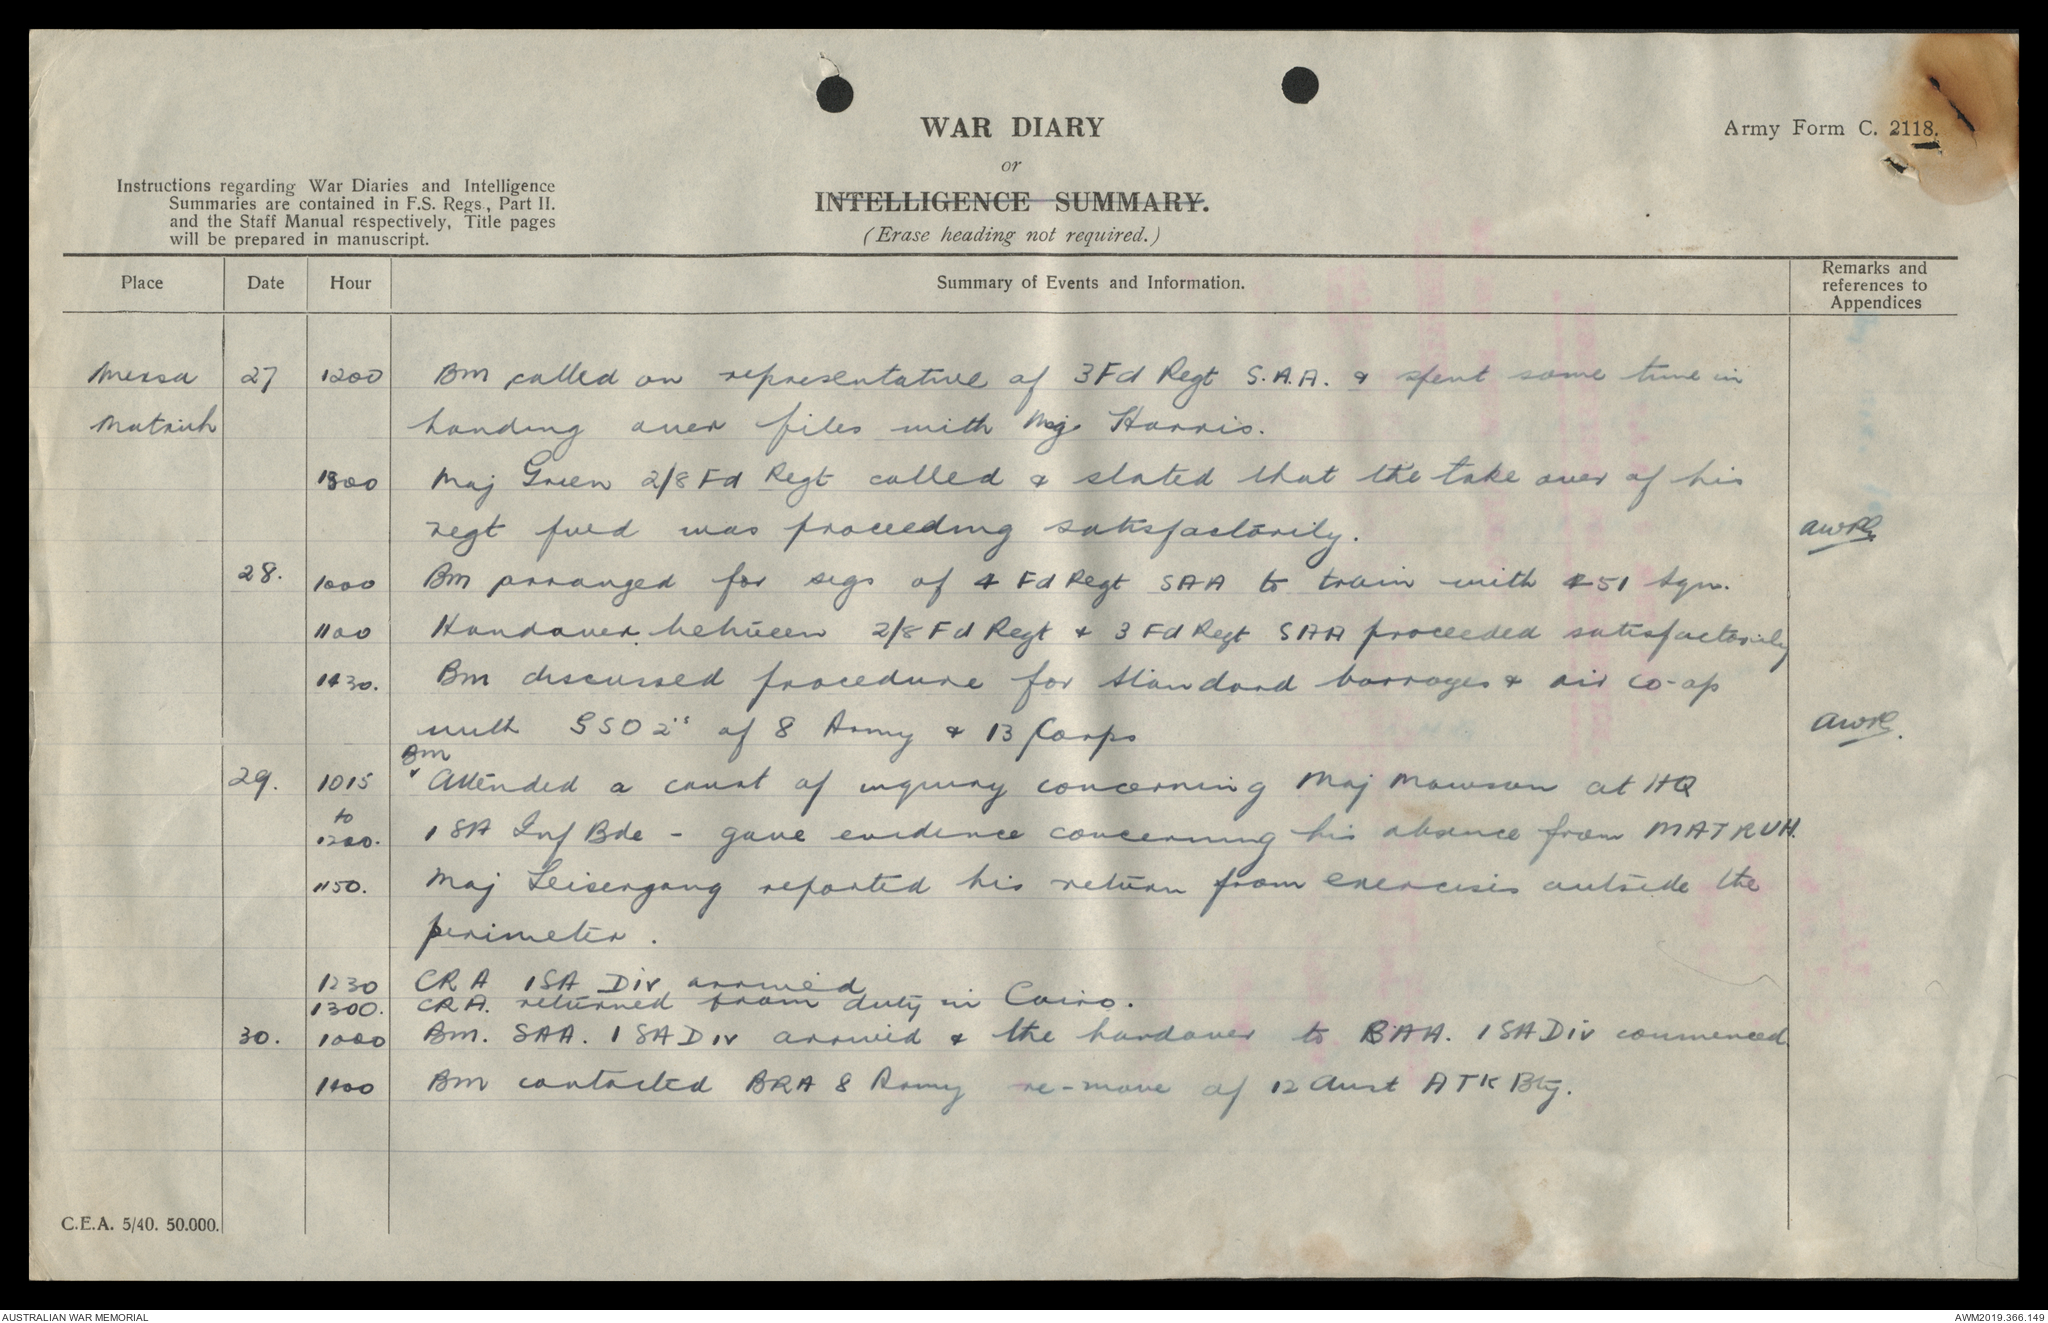 WAR DIARY
or
INTELLIGENCE SUMMARY.
(Erase heading not required.)
Army Form C. 2118.
Instructions regarding War Diaries and Intelligence
Summaries are contained in F.S. Regs., Part II.
and the Staff Manual respectively, Title pages
will be prepared in manuscript.
Place Date Hour Summary of Events and Information. Remarks and
references to
Appendices
Mersa 27 1200 BM called on representative of 3 Fd Regt S.A.A. & spent some time in
Matruh handing over files with Maj Harris.
1300 Maj Green 2/8 Fd Regt called & stated that the take over of his
regt fwd was proceeding satisfactorily. AWR
28. 1000 BM arranged for sigs of 4 Fd Regt SAA to train with 451 Sqn.
1100 Handover between 2/8 Fd Regt & 3 Fd Regt SAA proceeded satisfactorily
1430. BM discussed procedure for standard barrages & air co-op
with GSO 2's of 8 Army & 13 Corps AWR.
BM
29. 1015 Attended a court of inquiry concerning Maj Mawson at HQ
to
1200. 1 SA Inf Bde - gave evidence concerning his absence from MATRUH.
1150. Maj Leisegang reported his return from exercises outside the
perimeter.
1230 CRA 1 SA Div arrived
1300. CRA. returned from duty in Cairo.
30. 1000 BM. SAA. 1 SA Div arrived & the handover to RAA. 1 SA Div commenced
1400 BM contacted BRA 8 Army re-move of 12 Aust ATK Bty.
C.E.A. 5/40. 50.000.
AUSTRALIAN WAR MEMORIAL
AWM2019.366.149